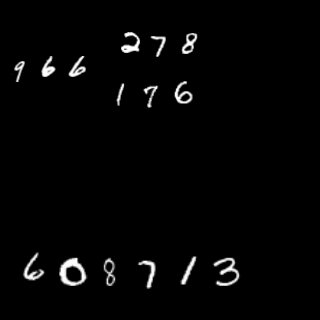 278
966
176
608713